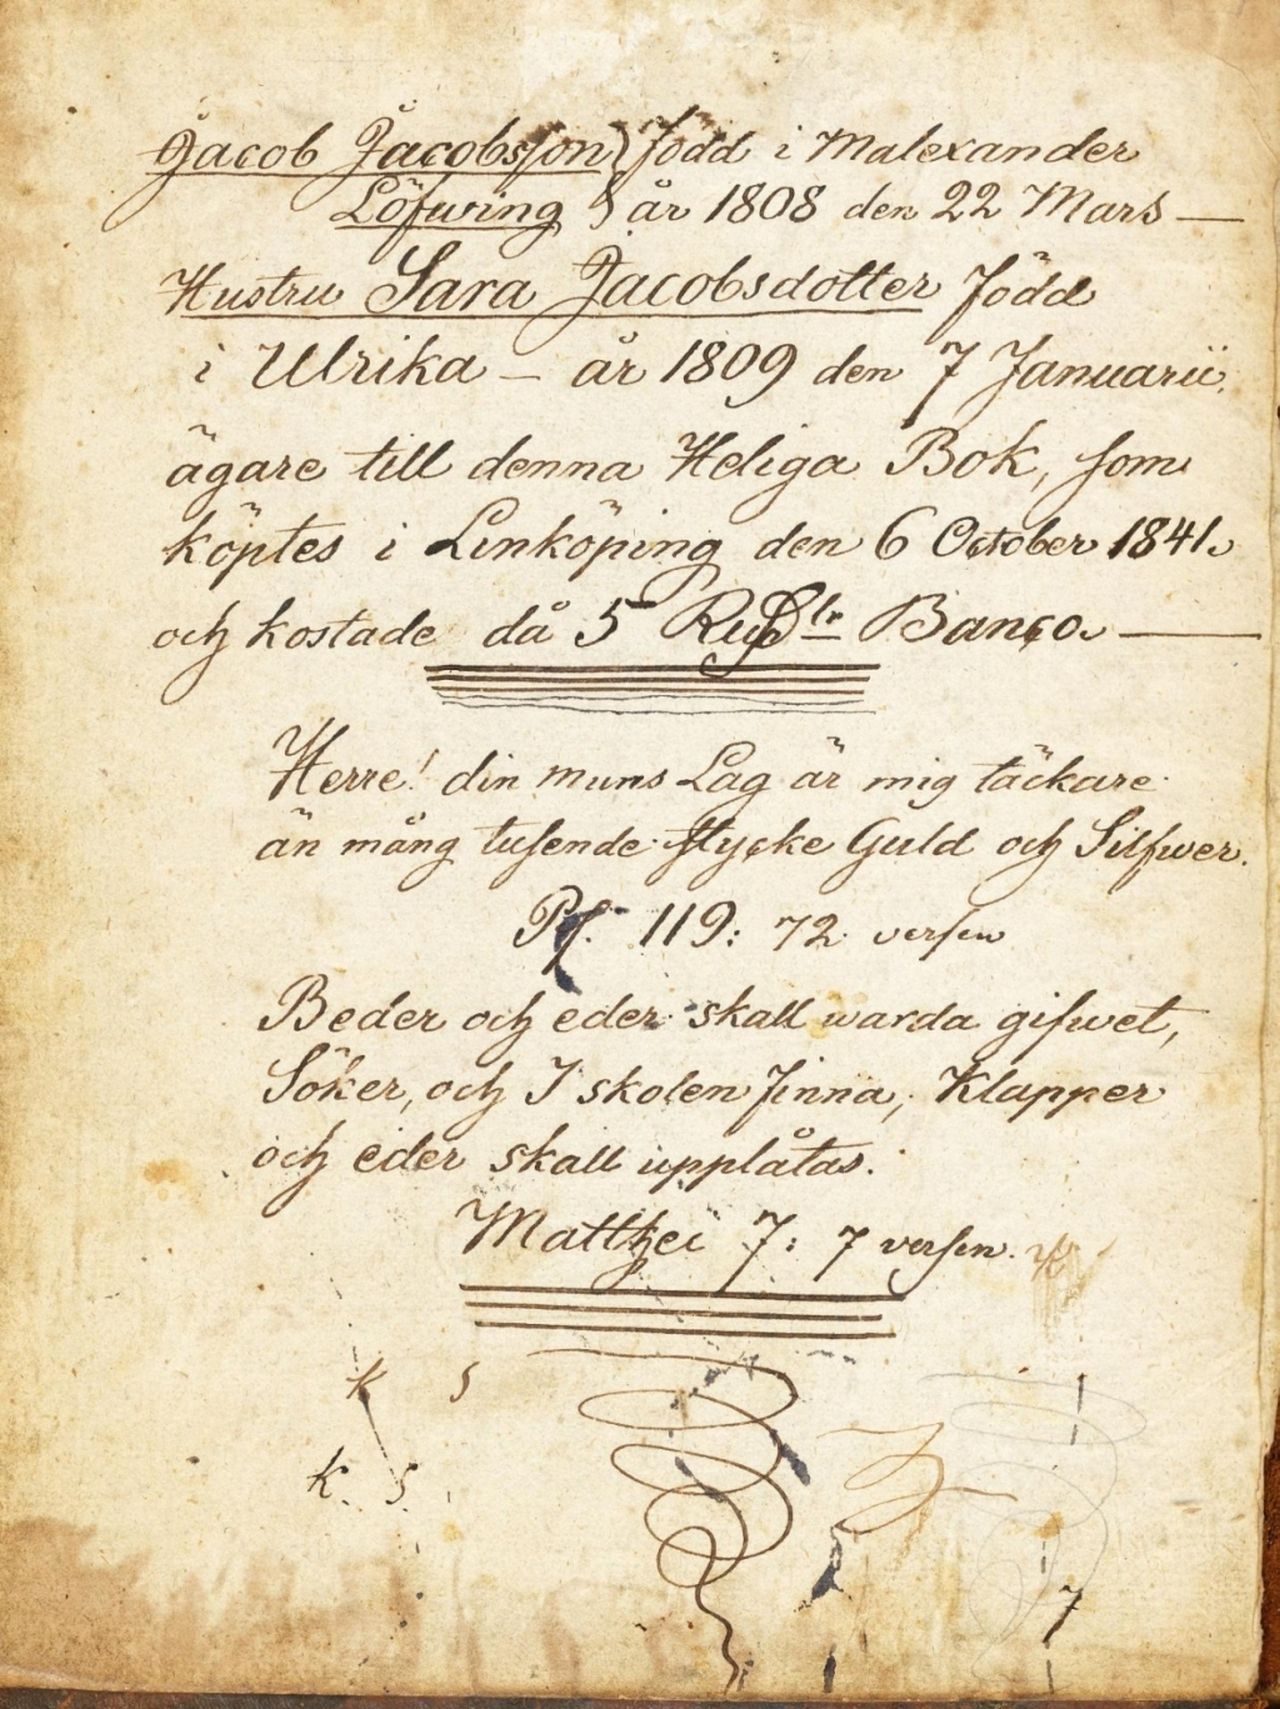 Jacob Jacobsson } född i Malexander
Löfwing } år 1808 den 22 Mars —
Hustru Sara Jacobsdotter född
i Ulrika – år 1809 den 7 Januarii.
ägare till denna Heliga Bok, som
köptes i Linköping den 6 October 1841.
och kostade då 5 Banco. —
Herre! din muns Lag är mig täckare
än mång tusende stycke Guld och Silfwer.
Ps. 119: 72 versen
Beder och eder skall warda gifwet,
Söker, och I skolen finna; Klapper
och eder skall upplåtas.
Matthei 7: 7 versen.
K S
K. S.
7